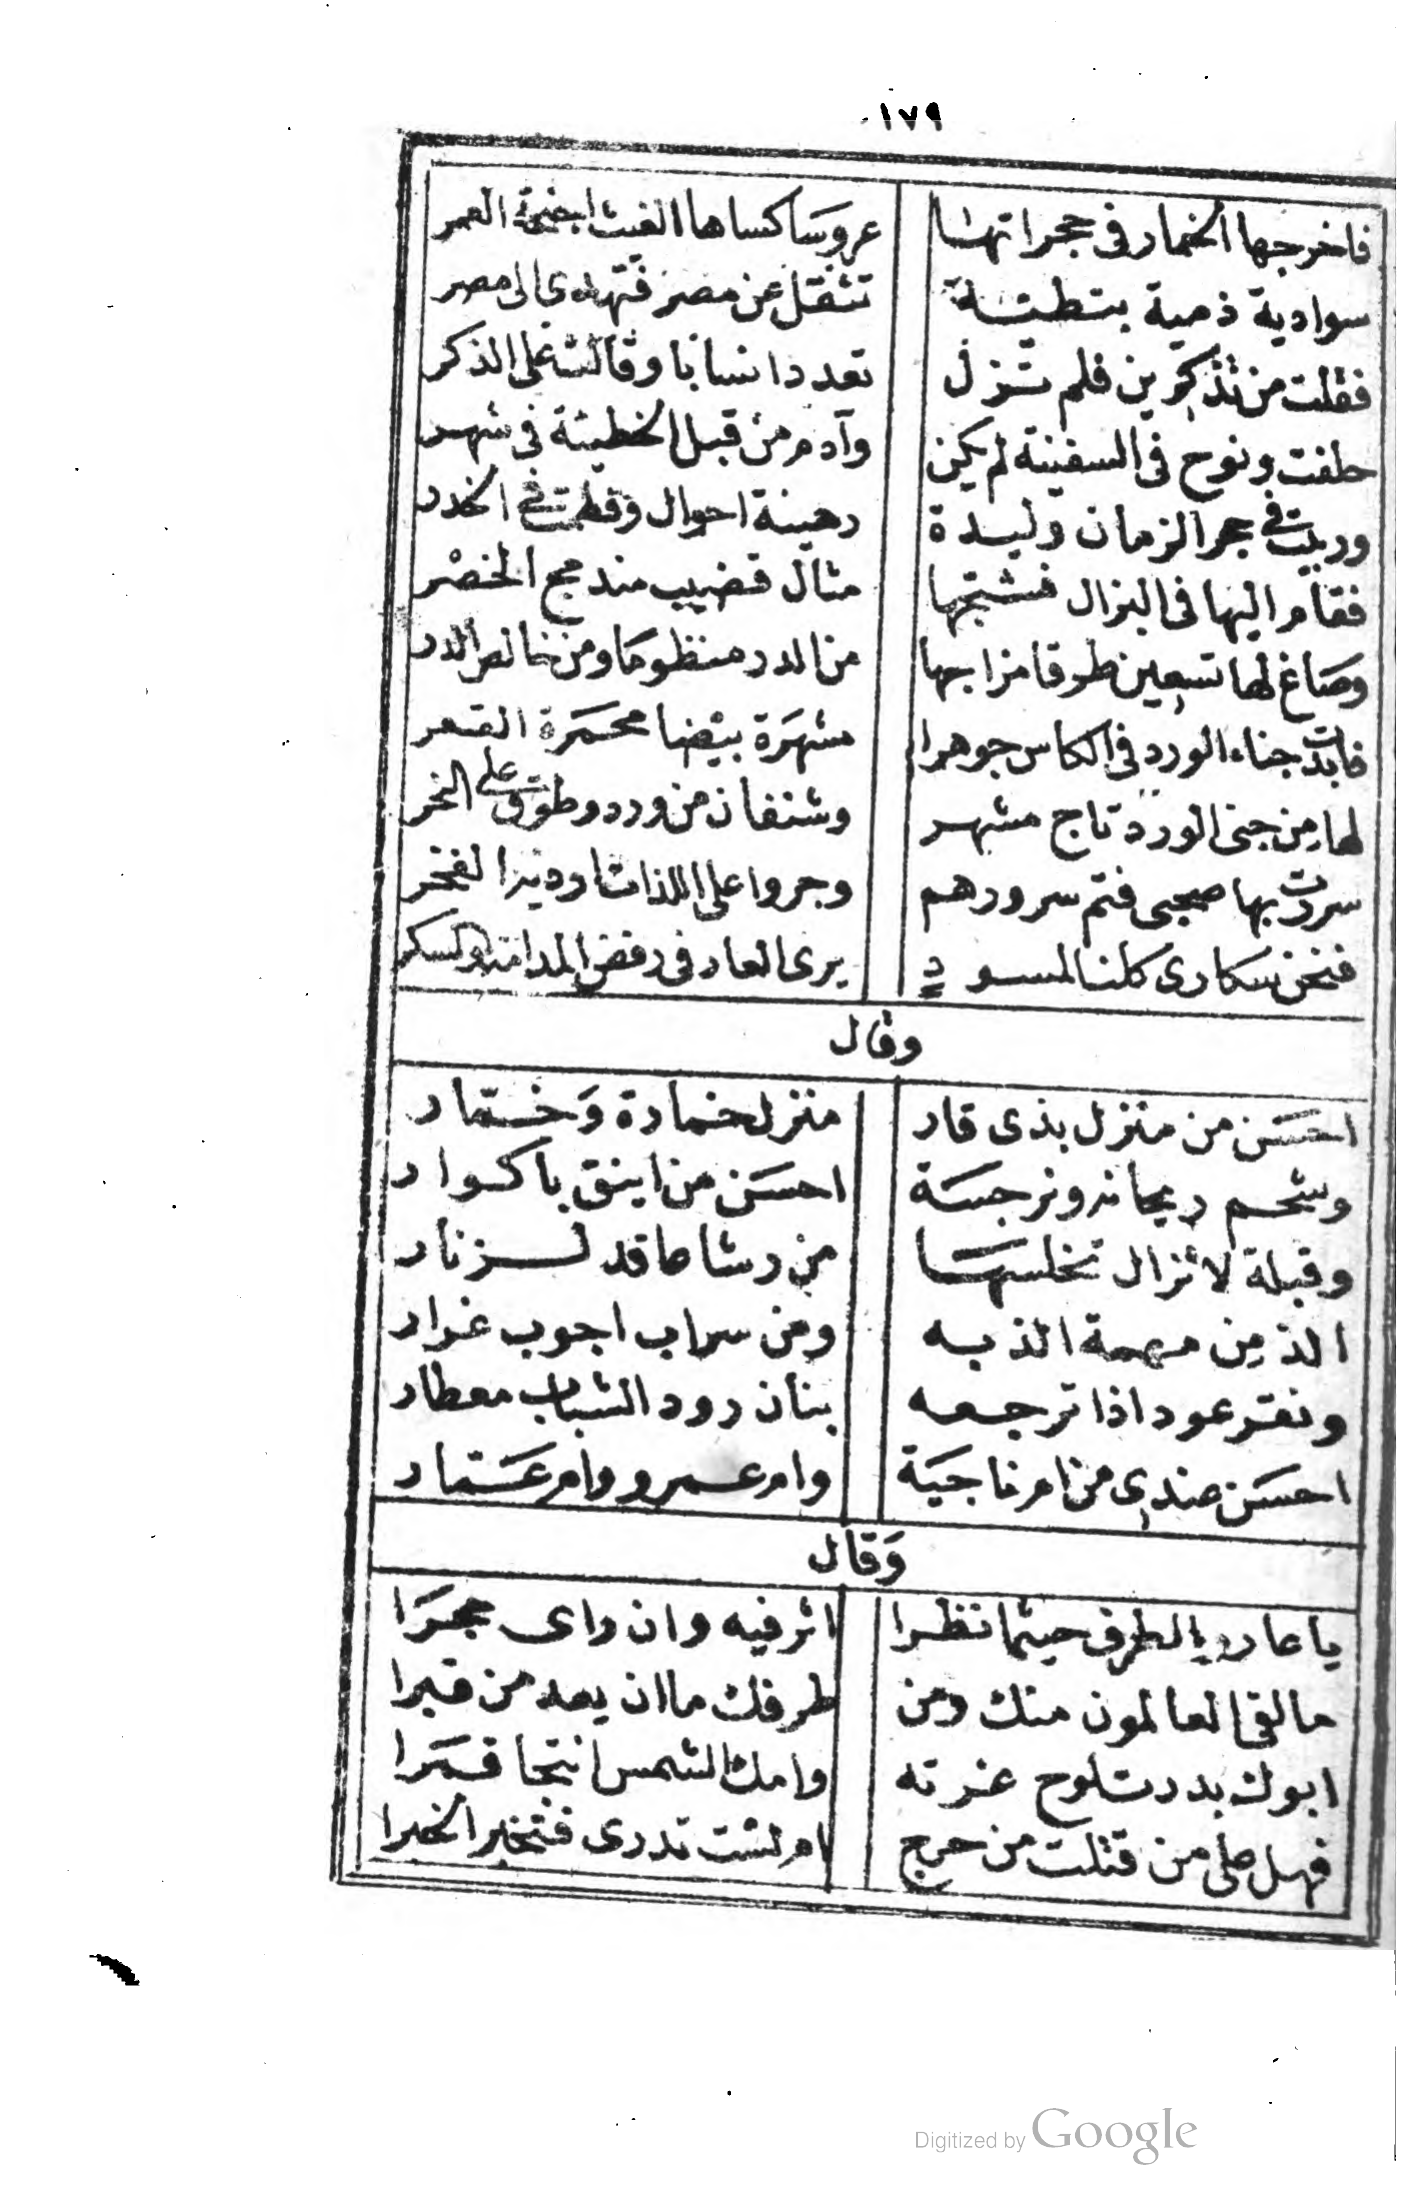 ١٧٩
فاخرجها الخمار فى حجراتها عروسا كساها الغيث اجنحة العمر
سوادية ذمية بتطية تنقل عن مصر فتهدى الى مصر
فقلت من تذكرين فلم تزل تعدد انسابا وقالت على الذكر
حلفت ونوح فى السفينة لم يكن وآدم من قبل الخطيئة فى شهر
وربت فى حجر الزمان وليدة رهينة احوال وقلت فى الخدر
فقام اليها فى البزال فشجها مثال قضيب مند مج الخصر
وصاغ لها تسعين طوقا مزاجها من الدر منظوما ومن خالص الدر
فابدت جناء الورد فى الكاس جوهرا مشهرة بيضا محمرة القعر
لها من جنى الورد تاج مشهر وشنفان من ورد وطوق على النحر
سررت بها صحبى فتم سرورهم وجروا على اللذات اردية الفخر
فنحن سكارى كلنا لمسود يرى العار فى رفض المدامة والسكر
وقال
احسن من منزل بذى قار منزل خمارة وخمار
وشم ريحانه ونرجسة احسن من اينق باكوار
وقبلة لا تزال تخلسها من رشا عاقد لزنار
الذ من مهمة الذ به ومن سراب اجوب غرار
ونقر عود اذا ترجعه بنان رود الشباب معطار
احسن عندى من ام ناجية وام عمرو وام عمار
وقال
يا عاره بالطرف حيثما نظرا اثر فيه وان راى حجرا
مالقى العالمون منك ومن طرفك ما ان يعد من قبرا
ابوك بدر تلوح غرته وامك الشمس انتجا قمرا
فهل على من قتلت من حرج ام لست تدرى فتخبر الخبرا
Digitized by Google